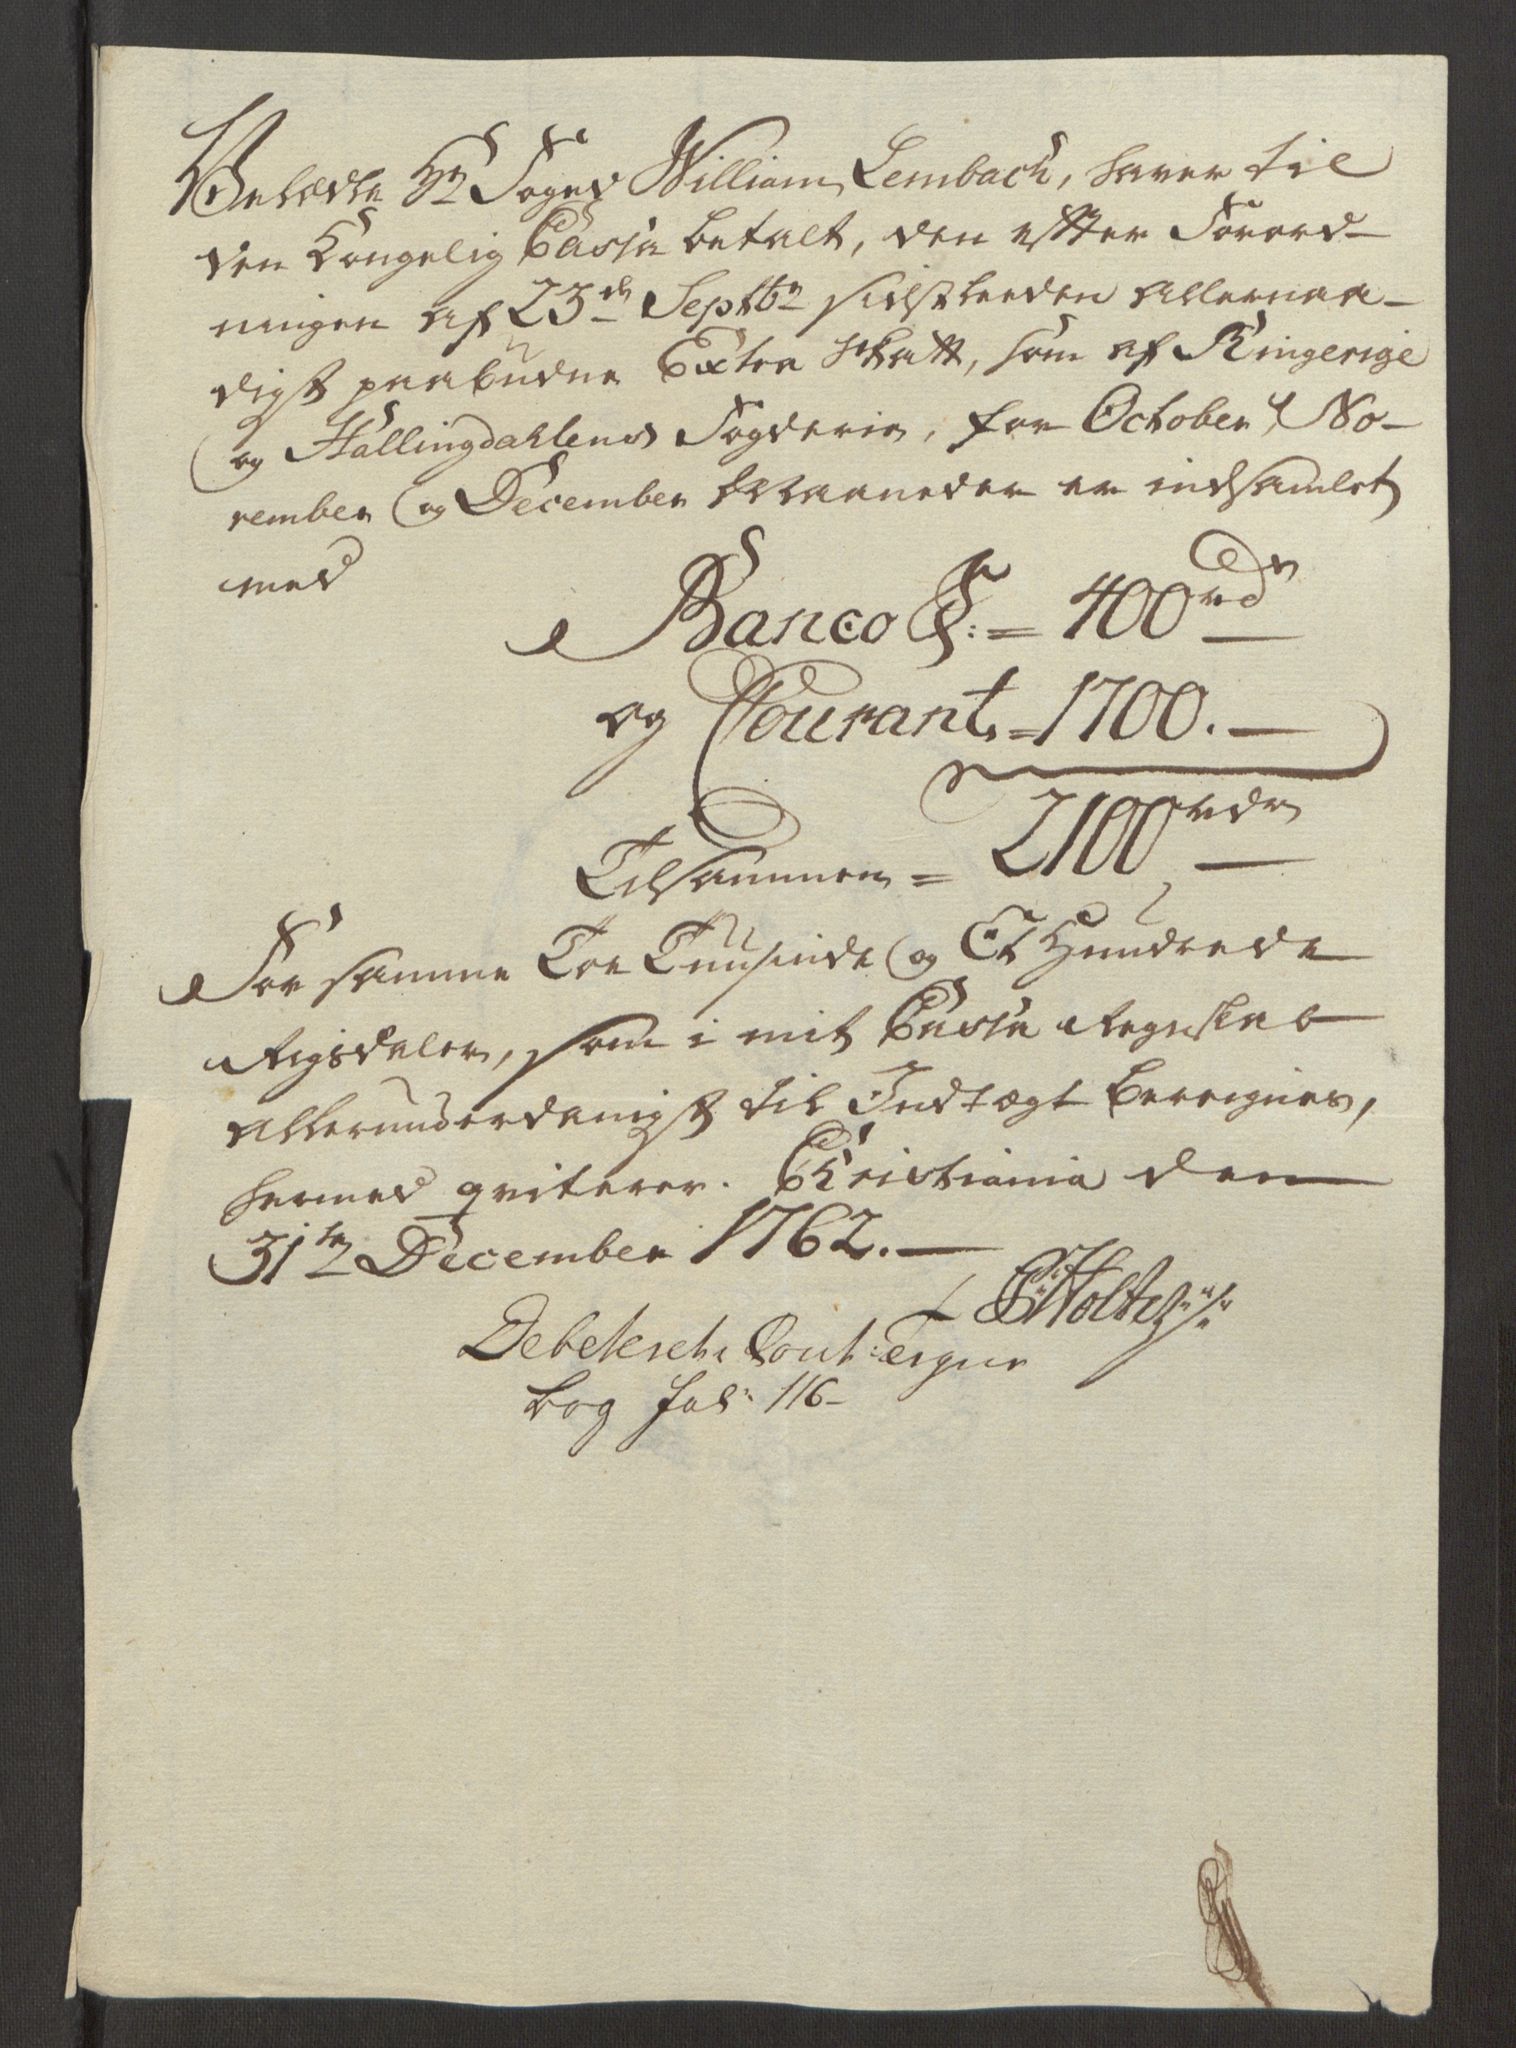 Velædle Hr Foged William Lembach, haver til
den Kongelig Cassa betalt, den efter Forord-
ningen af 23de Septbr sidstleeden allernaa-
digst paabudne Extra Skatt, som af Ringerige
og Hallingdahlens Fogderie, for October, No-
vember og December Maaneder er indsamlet
med
Banco S: = 400 rdr —
og Courant = 1700. —
Tilsammen = 2100 rdr —
For samme Toe Tuusinde og Et Hundrede
Rigsdaler, som i mit Cassa Regnskab
allerunderdanigst til Indtægt bereignes,
hermed qviterer. Christiania den
31te December 1762. —
Holte
Debeteret i Cont:
bog fol: 116-